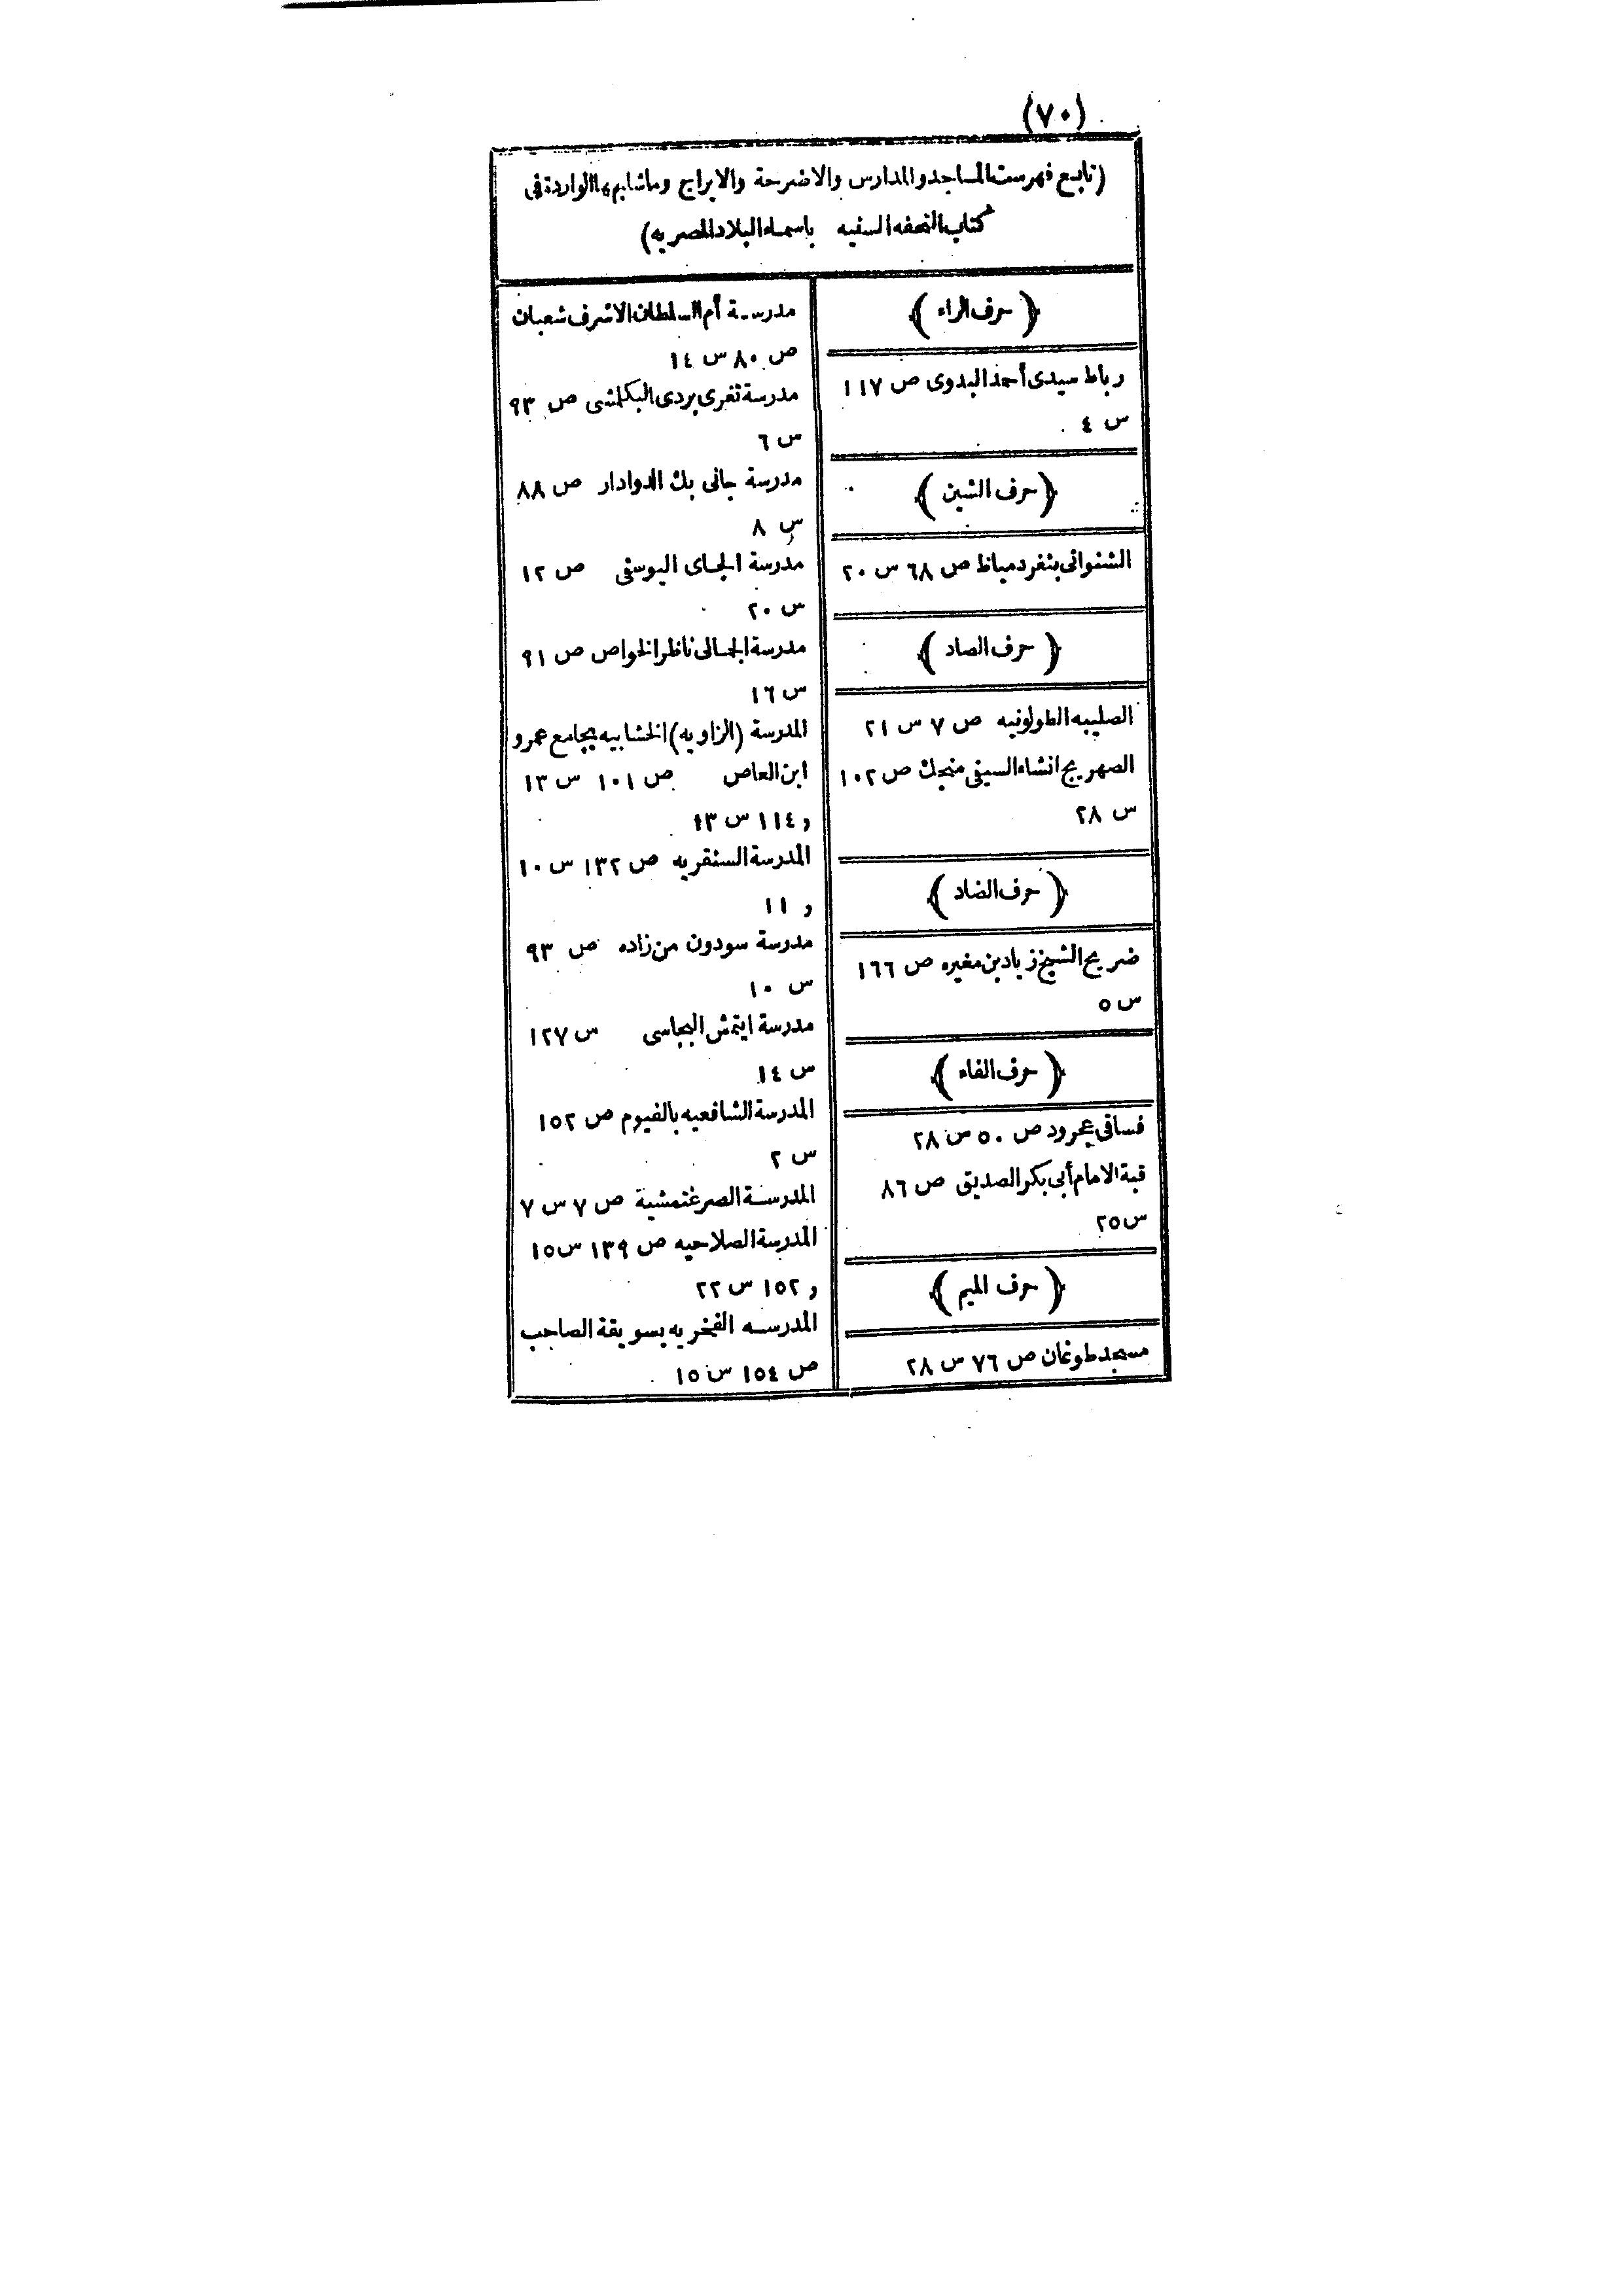 (٧٠)
(تابع فهرست المساجد والمدارس والاضرحة والابراج وماشابهها الواردة فى
كتاب التحفه السنيه باسماء البلاد المصريه)
(حرف الراء)
رباط سيدى أحمد البدوى ص ١١٧
س ٤
(حرف الشين)
الشنوانى بثغر دمياط ص ٦٨ س ٢٠
(حرف الصاد)
الصليبه الطولونيه ص ٧ س ٢١
الصهريج انشاء السيفى منجك ص ١٠٢
س ٢٨
(حرف الضاد)
ضريح الشيخ زياد بن مغيره ص ١٦٦
س ٥
(حرف الفاء)
فساقى عجرود ص ٥٠ س ٢٨
قبة الامام أبى بكر الصديق ص ٨٦
س ٢٥
(حرف الميم)
مسجد طوغان ص ٧٦ س ٢٨
مدرسة أم السلطان الاشرف شعبان
ص ٨٠ س ١٤
مدرسة تغرى بردى البكلمشى ص ٩٣
س ٦
مدرسة جانى بك الدوادار ص ٨٨
س ٨
مدرسة الجاى اليوسفى ص ١٢
س ٢٠
مدرسة الجمالى ناظر الخواص ص ٩١
س ١٦
المدرسة (الزاويه) الخشابيه بجامع عمرو
ابن العاص ص ١٠١ س ١٣
و ١١٤ س ١٣
المدرسة السنقريه ص ١٣٢ س ١٠
و ١١
مدرسة سودون من زاده ص ٩٣
س ١٠
مدرسة ايتمش البجاسى س ١٢٧
س ١٤
المدرسة الشافعيه بالفيوم ص ١٥٢
س ٢
المدرسة الصرغتمشية ص ٧ س ٧
المدرسة الصلاحيه ص ١٣٩ س ١٥
و ١٥٢ س ٢٢
المدرسه الفخريه بسويقة الصاحب
ص ١٥٤ س ١٥